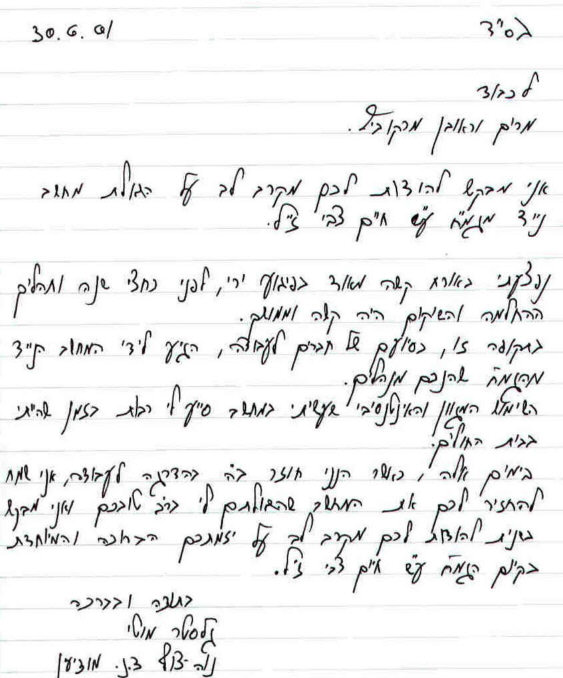 30.6.01 בס"ד
לכבוד
מרים וראובן מרקוביץ.
אני מבקש להודות לכם מקרב לב על הגרלת מחשב
נייד מגמ"ח ע"ש חיים צבי ז"ל.
נפצעתי באורח קשה מאוד בפיגוע ירי, לפני כחצי שנה ותהליך
ההחלמה והשיקום היה קשה וממושך.
בתקופה זו, בסיועם של חברים לעבודה, הגיע לידי המחשב הנייד
מהגמ"ח שהנכם מנהלים.
השימוש המגוון והאינטנסיבי שעשיתי במחשב סייע לי רבות בזמן שהייתי
בבית החולים.
בימים אלה, כאשר הנני חוזר ב"ה בהדרגה לעבודה, אני שמח
להחזיר לכם את המחשב שהשאלתם לי ברב טובכם ואני מבקש
בשנית להודות לכם מקרב לב על יוזמתכם הברוכה והמיוחדת
בקיום הגמ"ח ע"ש חיים צבי ז"ל.
בתודה ובברכה
מוטי
נוה-צוף ד.נ. מודיעין